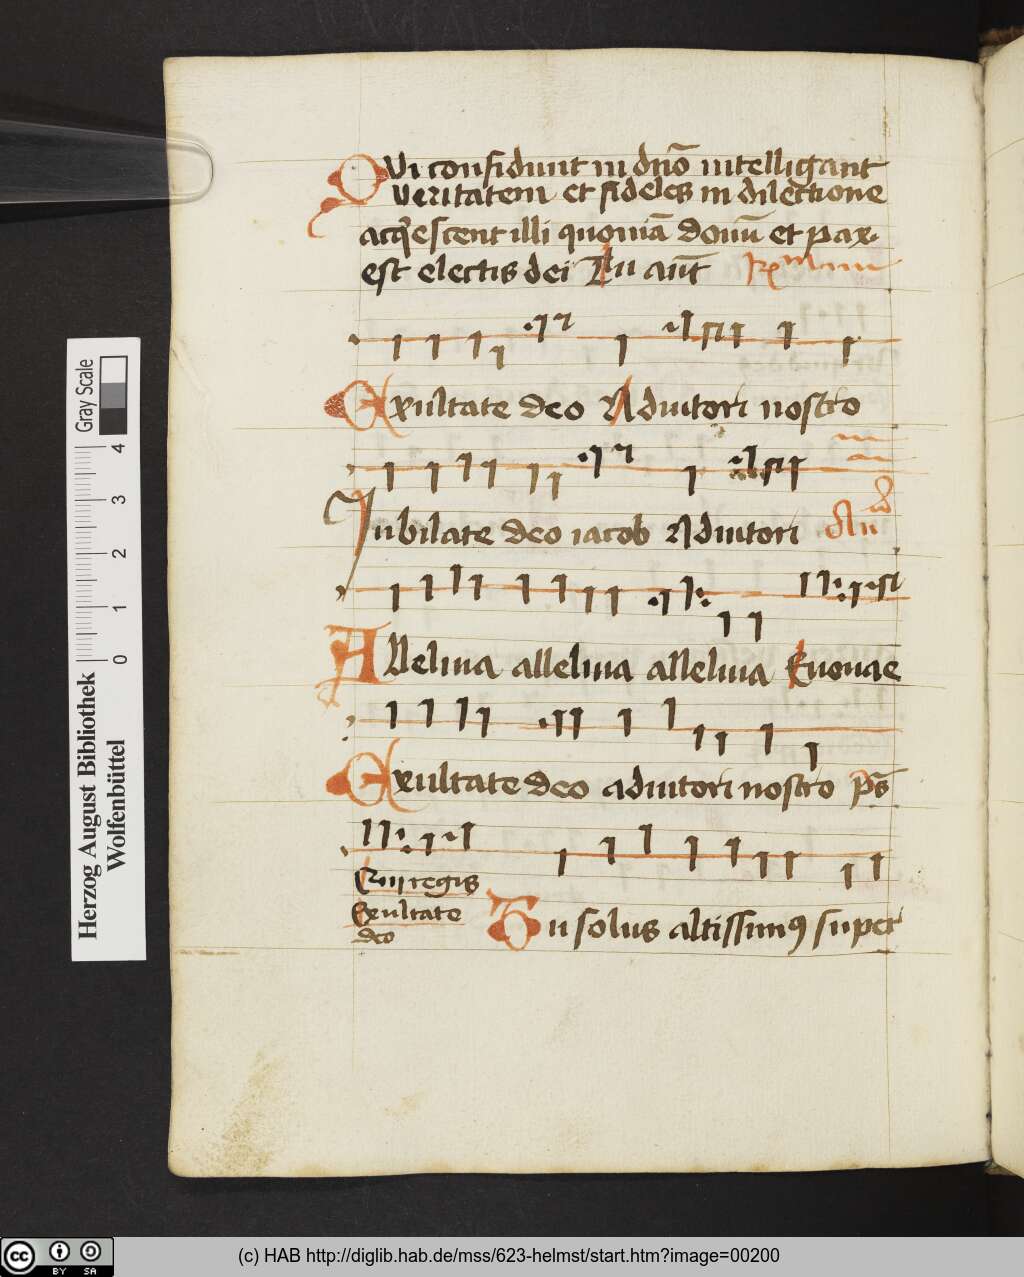 QUi confidunt in dnō intelligant
veritatem et fideles in dilectione
acq'escent illi quoniā donū et pax
est electis dei In ant̄
Exultate deo Adiutori nostro
Iubilate deo iacob Adiutori
ALleluia alleluia alleluia Euouae
Exultate deo adiutori nostro p̄s
regis
Exultate
deo
Tu solus altissimꝰ super
Gray Scale
4
3
2
1
0
Herzog August Bibliothek
Wolfenbüttel
cc BY SA
(c) HAB http://diglib.hab.de/mss/623-helmst/start.htm?image=00200